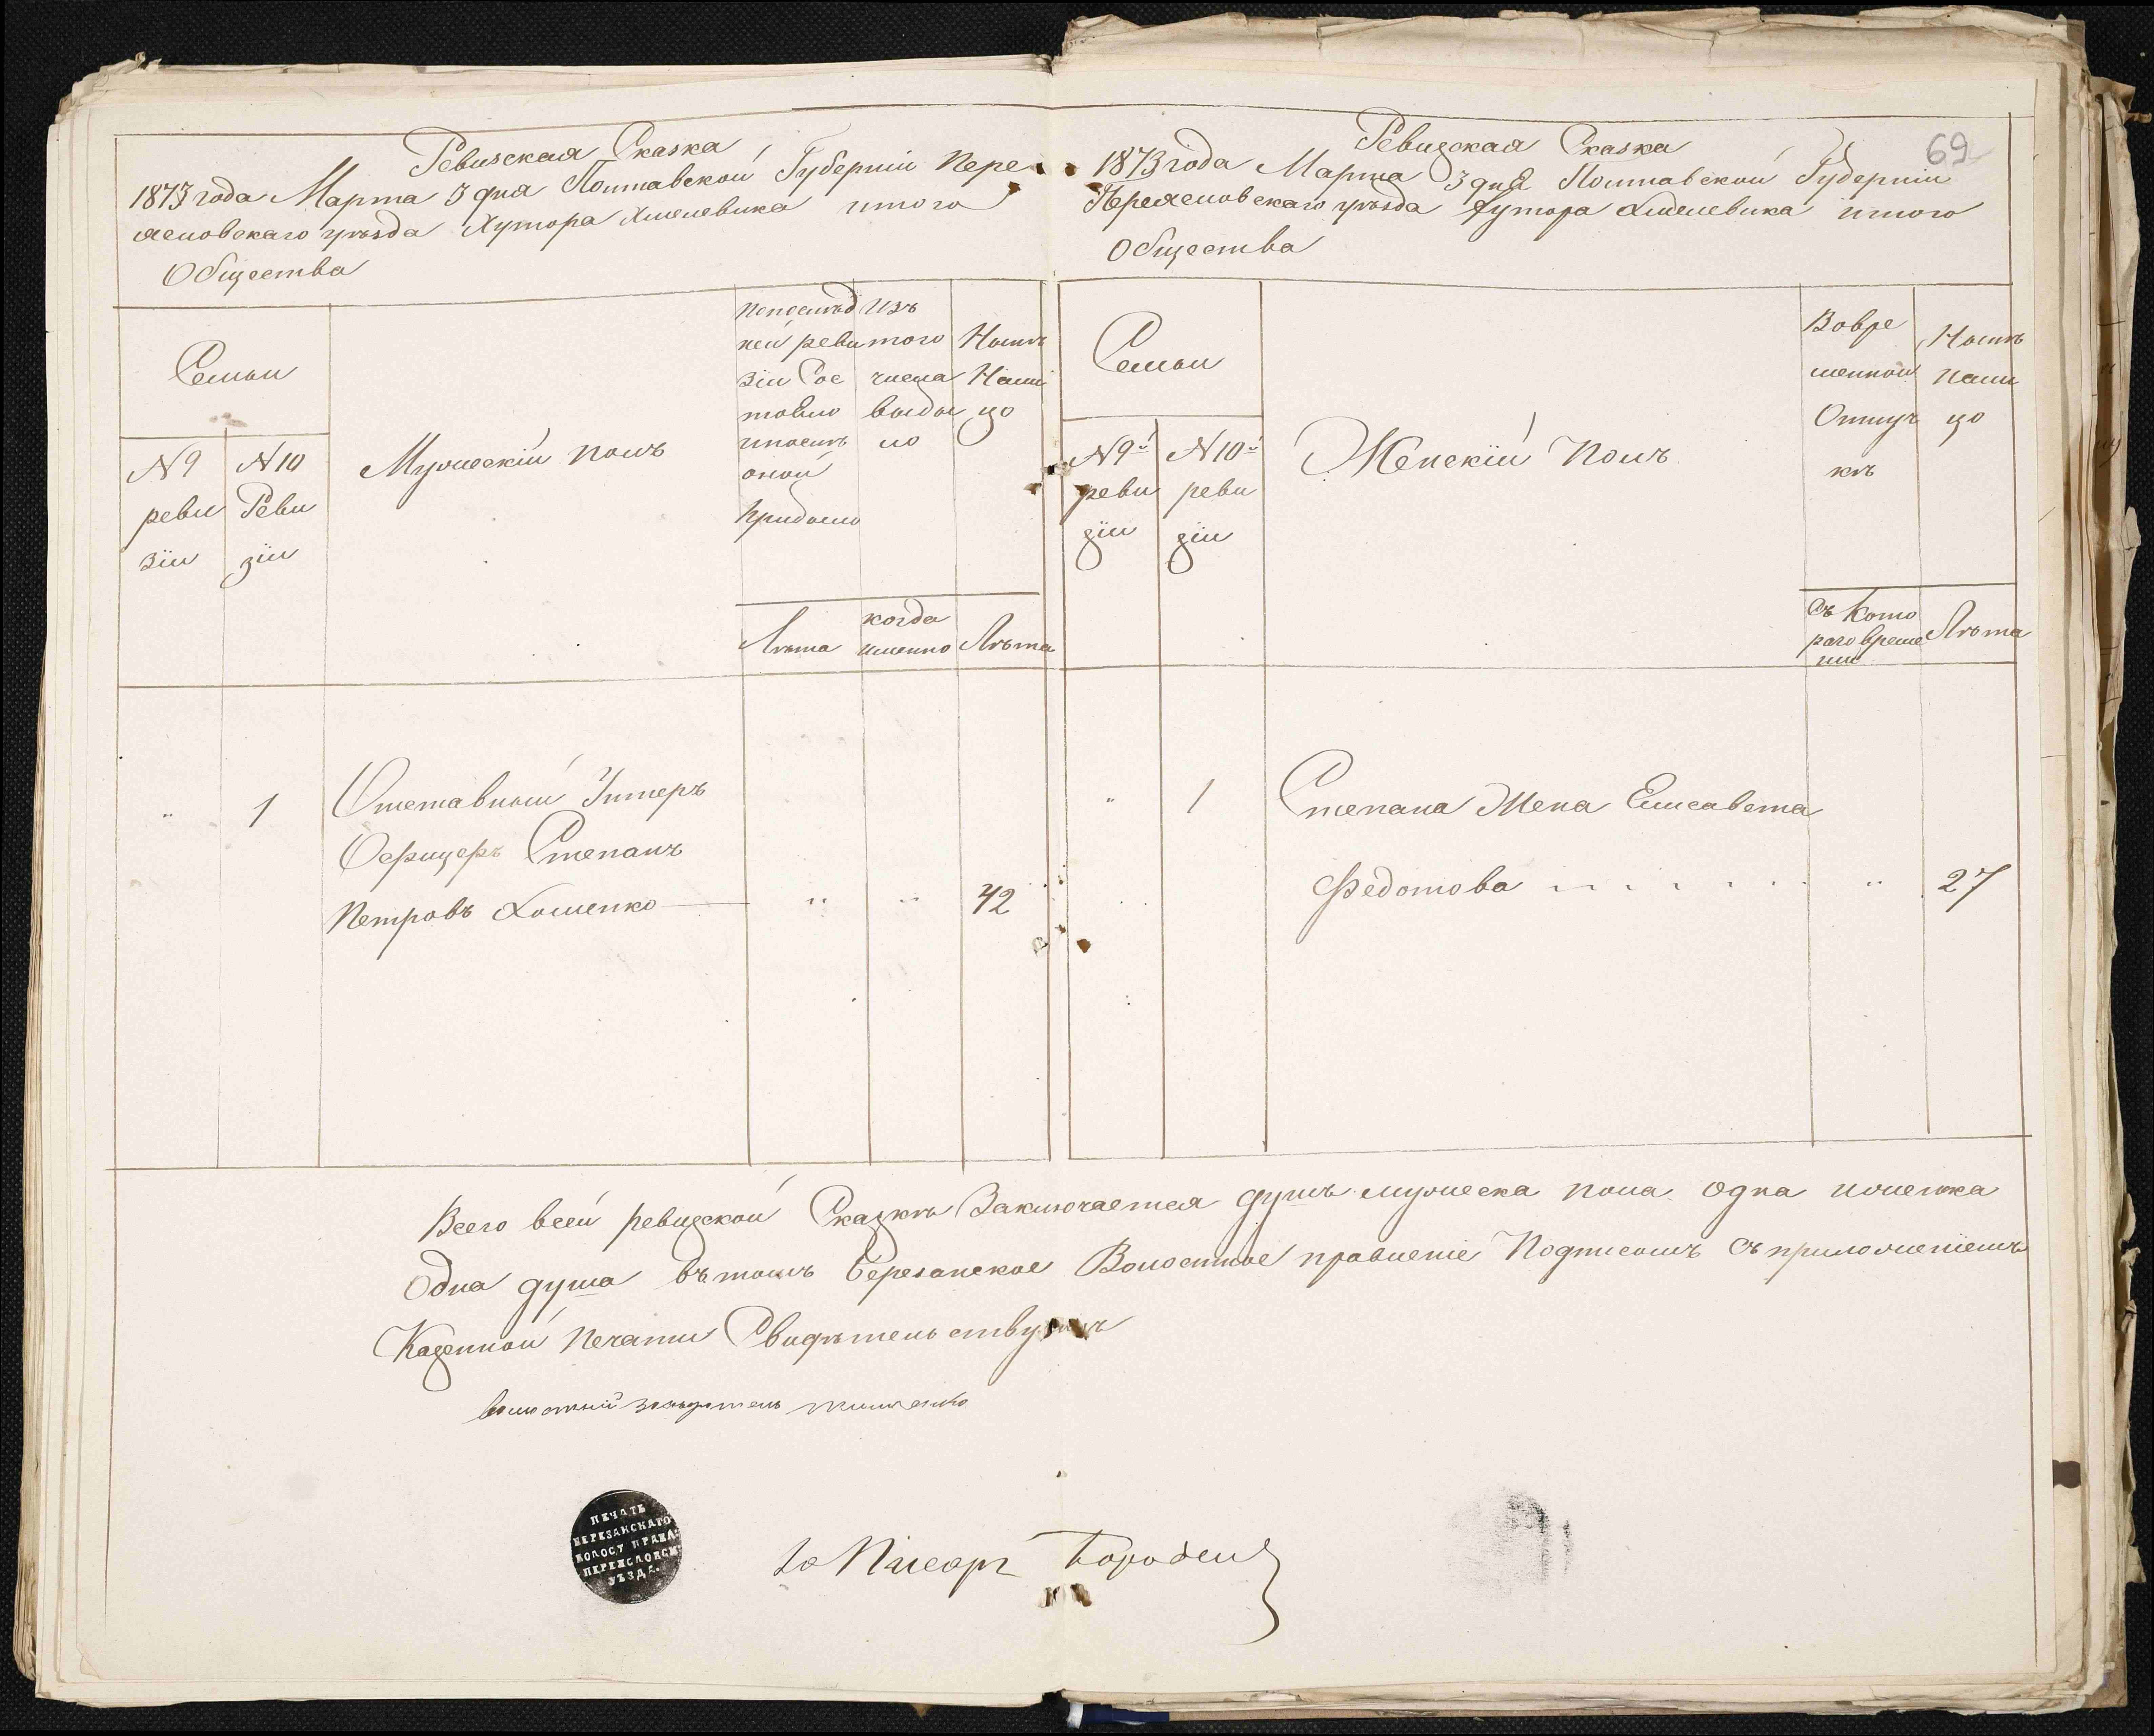 Ревизская Сказка
1873 года Марта 3 дня Полтавской Губерніи Пере
яславскаго уѣзда Хутора Хмелевика итого
Общества
Семьи
№ 9
реви
зіи
№ 10
Реви
зіи
Мужескій полъ
Попослѣд
ней реви
зіи Сос
тояло
ипослѣ
оной
Прибыло
Лѣта
Изъ
того
числа
выбы
ло
когда
именно
Нынѣ
Нали
цо
Лѣта
1
Отставный Унтеръ
Офицеръ Степанъ
Петровъ
42
69
Ревизская Сказка
1873 года Марта 3 дня Полтавской Губерніи
Переяславскаго уѣзда Хутора Хмелевика итого
Общества
Семьи
№ 9й
реви
зіи
№ 10й
реви
зіи
Женскій Полъ
Вовре
менной
Отлуч
кѣ
Съ Кото
раго Време
ни
Нынѣ
Нали
цо
Лѣта
1
Степана Жена Елисавета
Федотова
27
Всего всей ревизской Сказкѣ Заключается душъ мужеска пола одна иженска
Одна душа въ томъ Березанское Волостное правленіе Подписомъ Съ приложеніемъ
Казенной Печати
волостный
ПЕЧАТЬ
БЕРЕЗАНСКАГО
ВОЛОСТ ПРАВЛ:
ПЕРЕЯСЛОВСК:
УѢЗДА.
Писарь